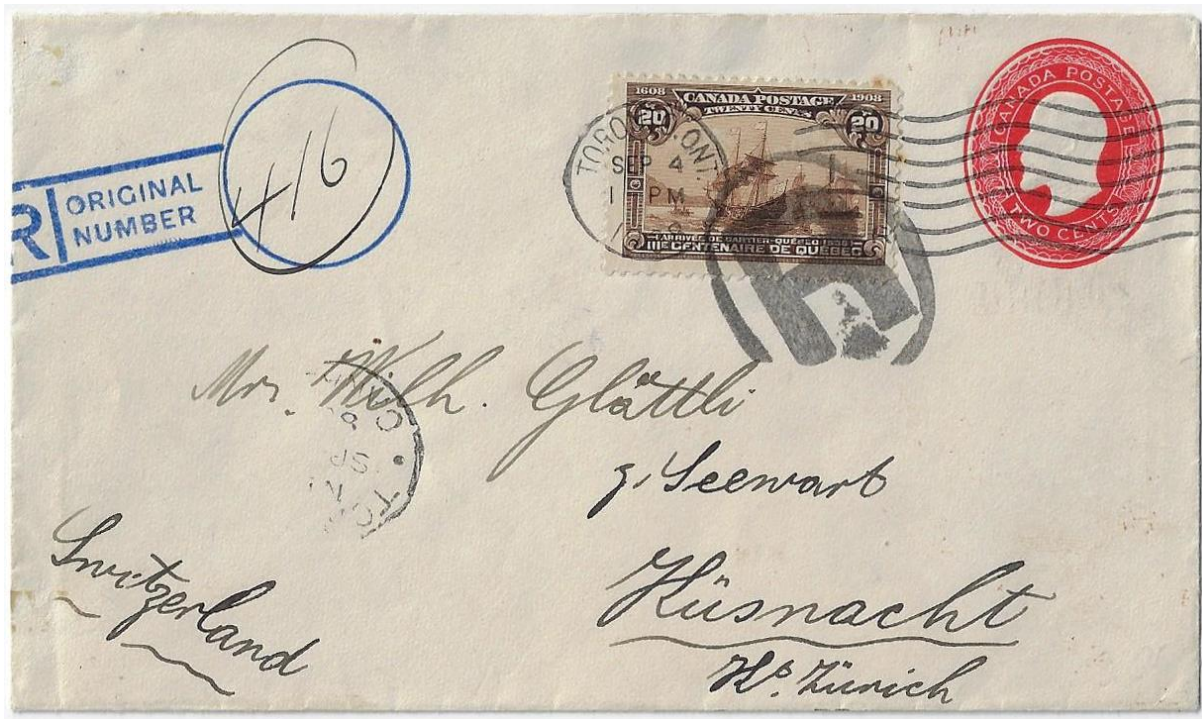 R ORIGINAL NUMBER
416
1608 CANADA POSTAGE 1908
TWENTY CENTS
20 20
L'ARRIVÉE DE CARTIER-QUÉBEC 1535
IIIE CENTENAIRE DE QUÉBEC
TORONTO ONT
SEP 4
PM
CANADA POSTAGE
TWO CENTS
R
Mr. Wilh. Glättli
z. Seewart
Küsnacht
Kt. Zürich
Switzerland